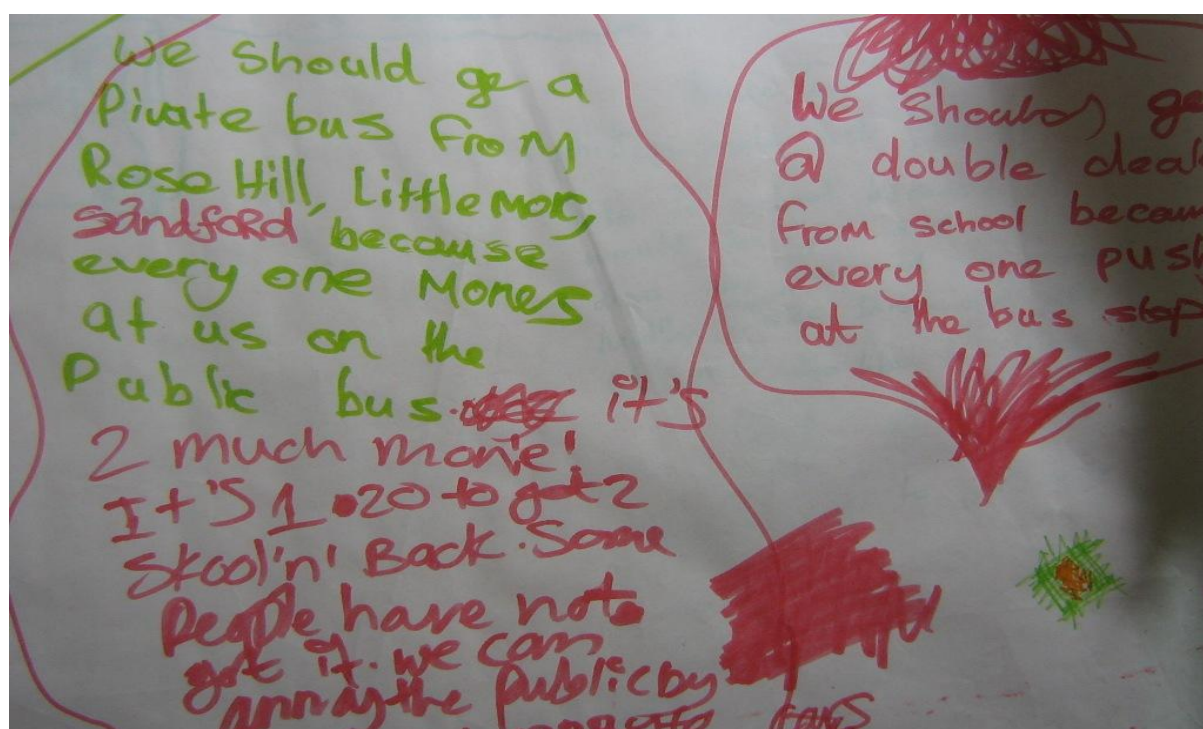 We should ge a
Pivate bus from
Rose Hill, Littlemore,
sandford because
every one Mones
at us on the
Public bus. it's
2 much mon'e!
It's 1.20 to get 2
Skool'n' Back. Some
People have not
got it. we can
annoy the public by
We should ge
a double deak
from school becau
every one push
at the bus stop